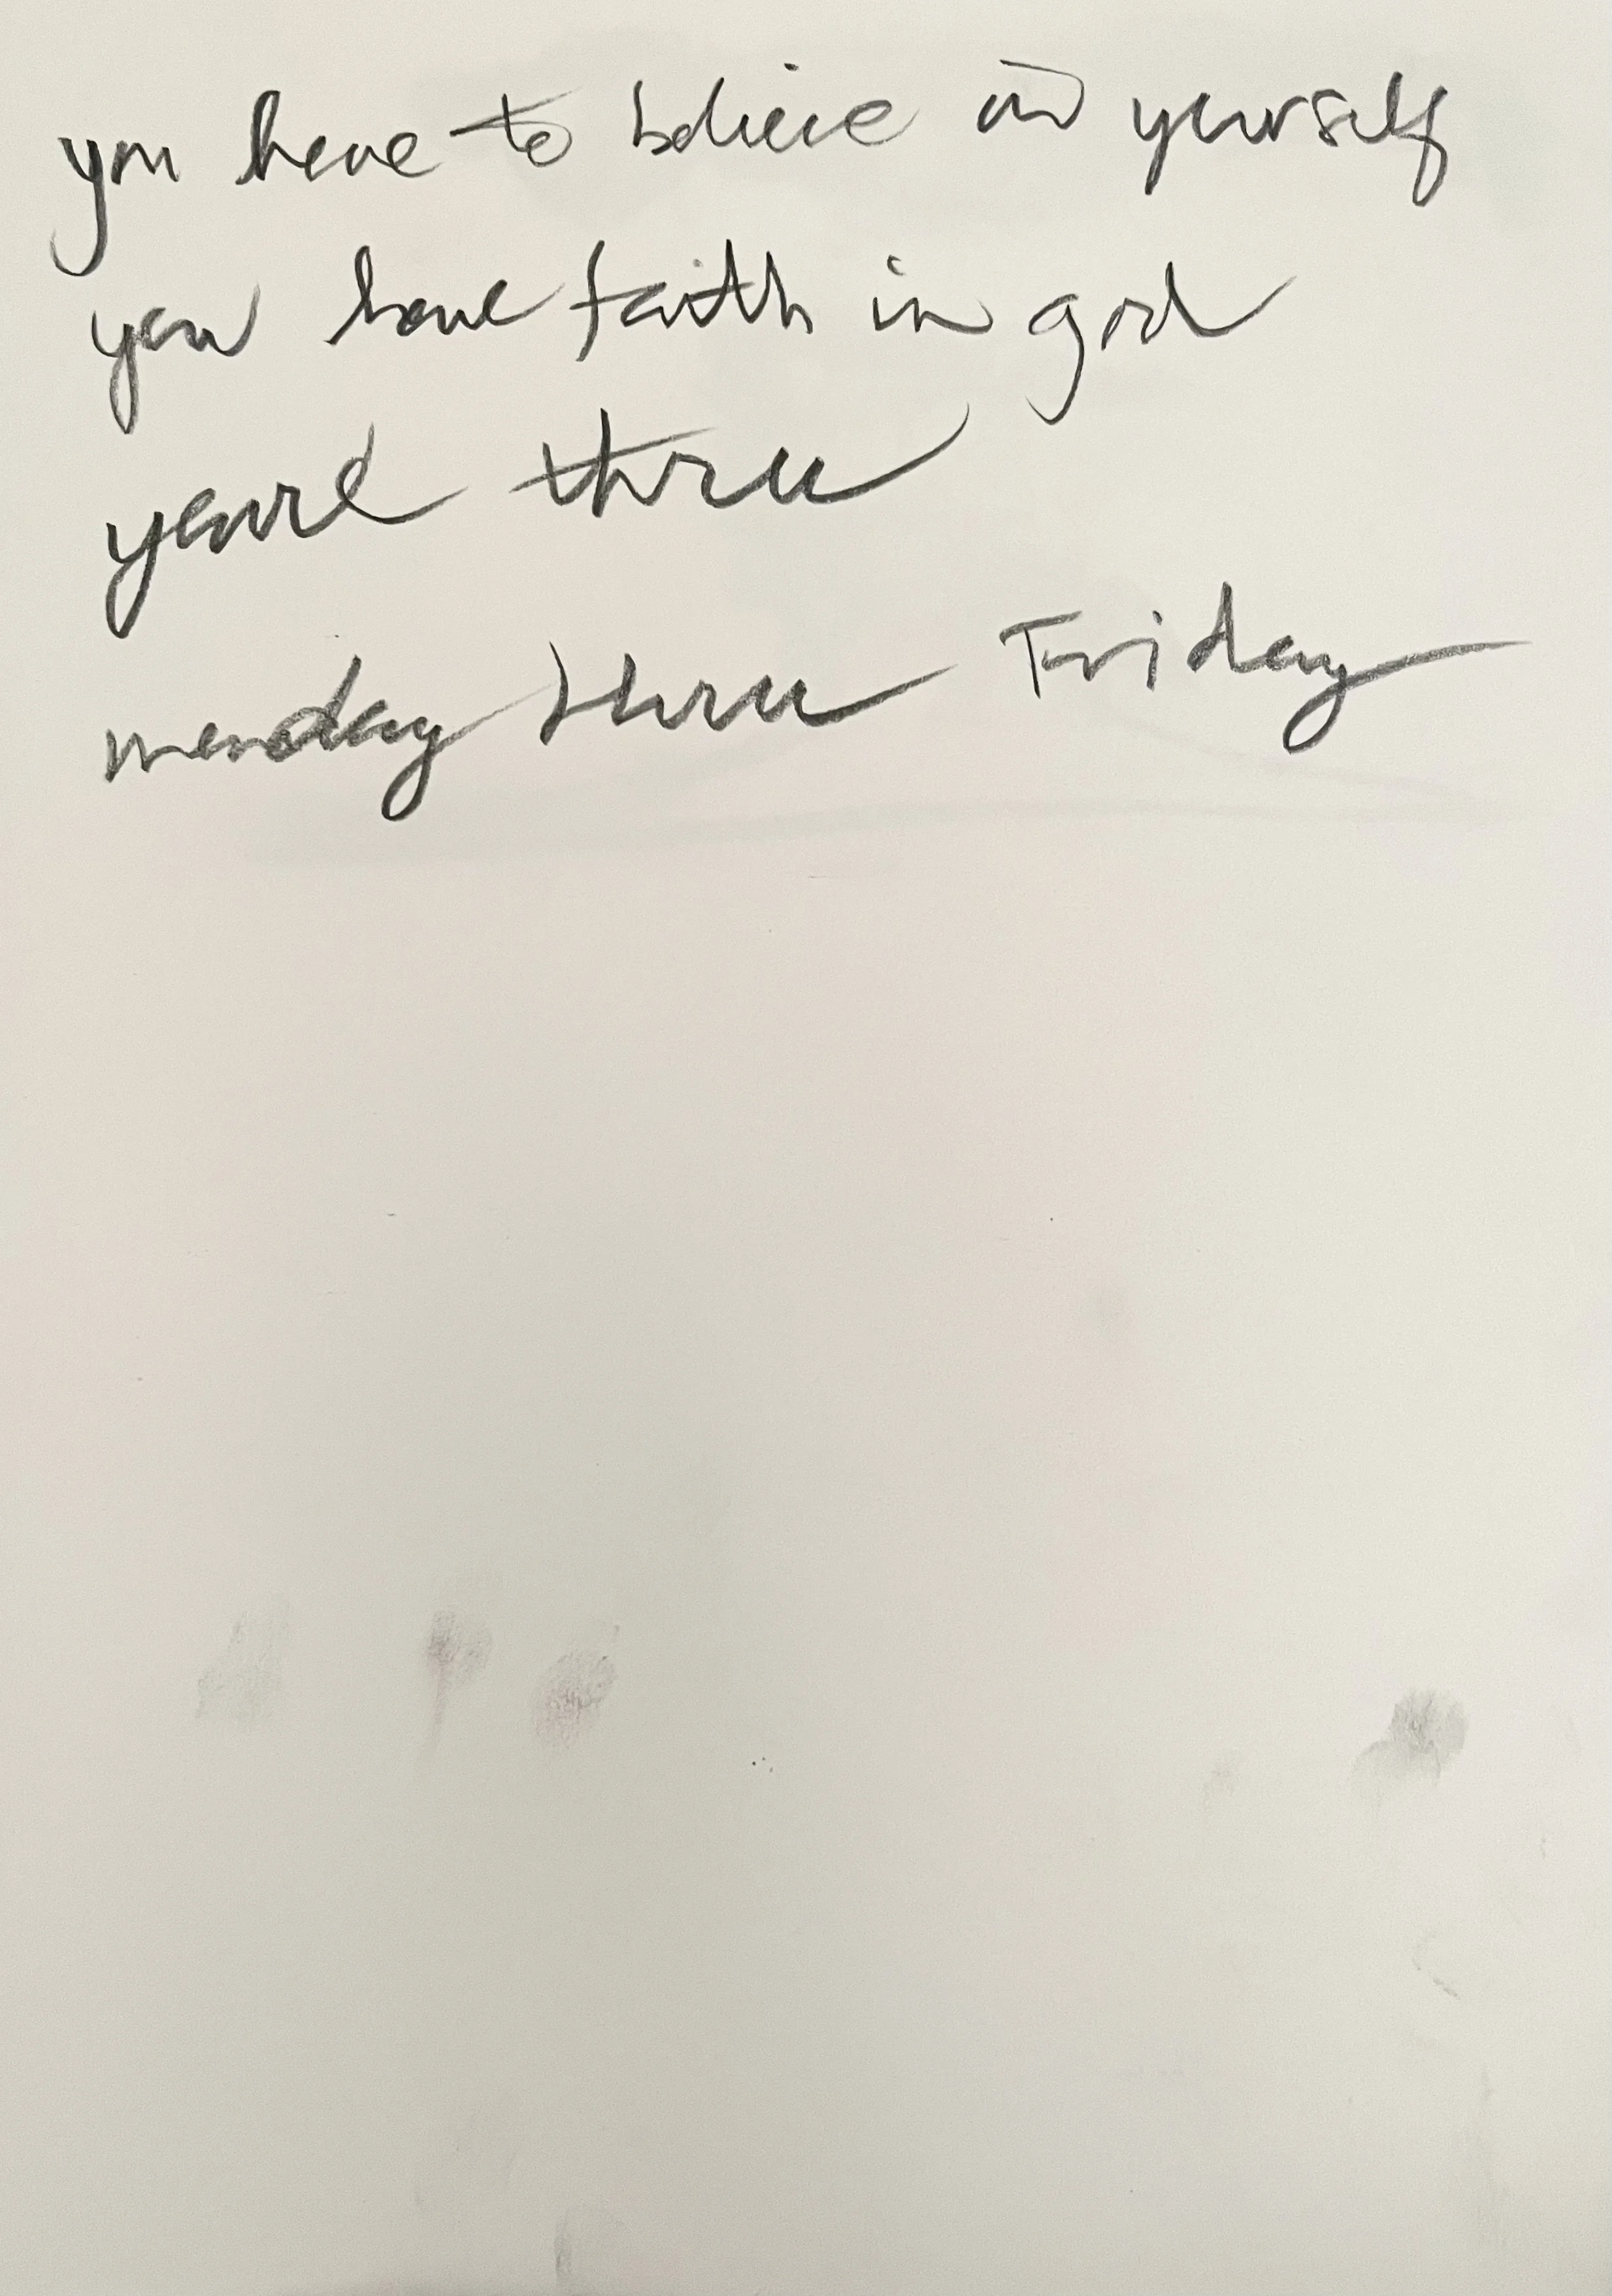 you have to believe in yourself
you have faith in god
youre thru
monday thru Friday